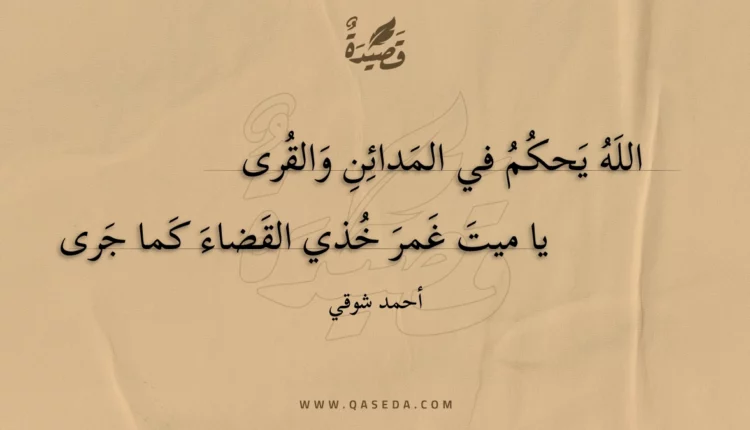 قَصِيدَةٌ
اللَهُ يَحكُمُ في المَدائِنِ وَالقُرى
يا ميتَ غَمرَ خُذي القَضاءَ كَما جَرى
أحمد شوقي
WWW.QASEDA.COM